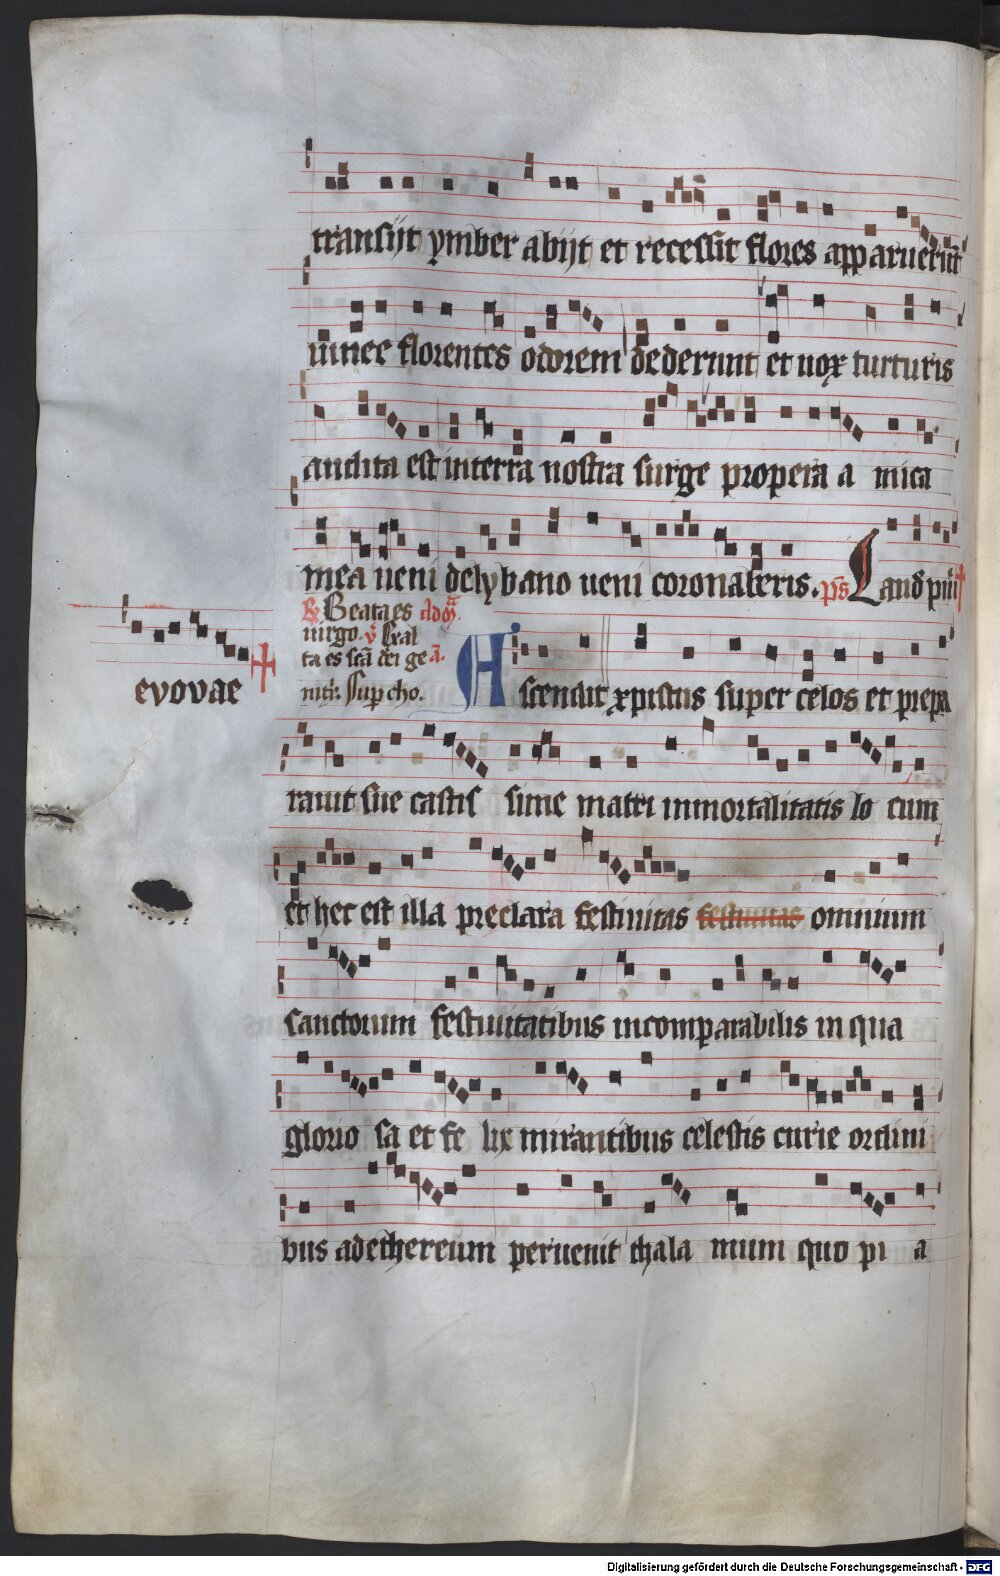 transijt ymber abijt et recessit flores apparuerūt
uinee florentes odorem dederunt et uox turturis
audita est in terra nostra surge propera a mica
mea ueni de lybano ueni coronaberis. ps Laud pm
Beata es ad m
uirgo. v Exal
ta es scā dei ge a.
nitr. Sup cho.
evovae
Ascendit xpistus super celos et prepa
rauit sue castis sime matri inmortalitatis lo cum
et hec est illa preclara festiuitas festiuitas omnium
sanctorum festiuitatibus incomparabilis in qua
glorio sa et fe lix mirantibus celestis curie ordini
bus ad ethereum peruenit thala mum quo pi a
Digitalisierung gefördert durch die Deutsche Forschungsgemeinschaft - DFG